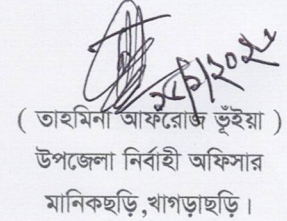 ( তাহমিনা আফরোজ ভূঁইয়া )
উপজেলা নির্বাহী অফিসার
মানিকছড়ি,খাগড়াছড়ি।